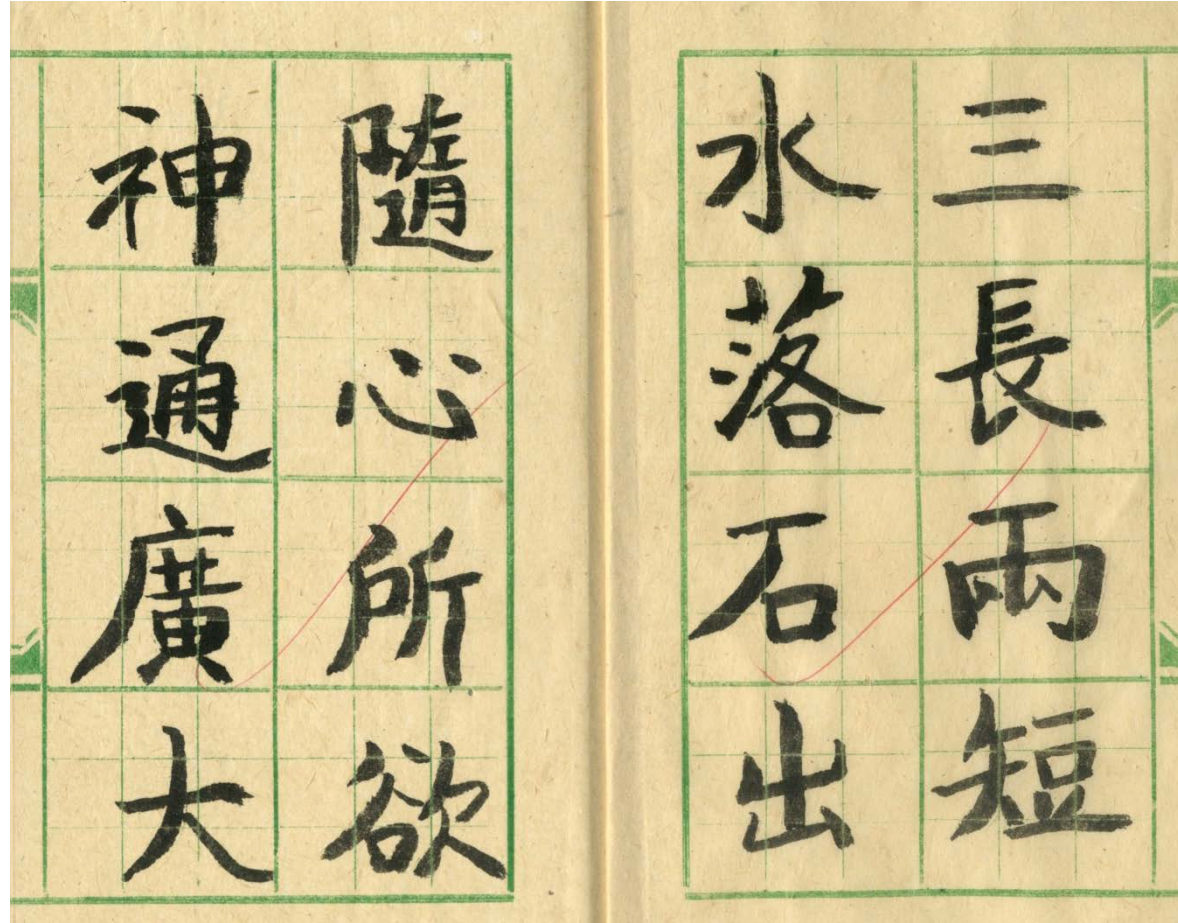 三長兩短
水落石出
隨心所欲
神通廣大